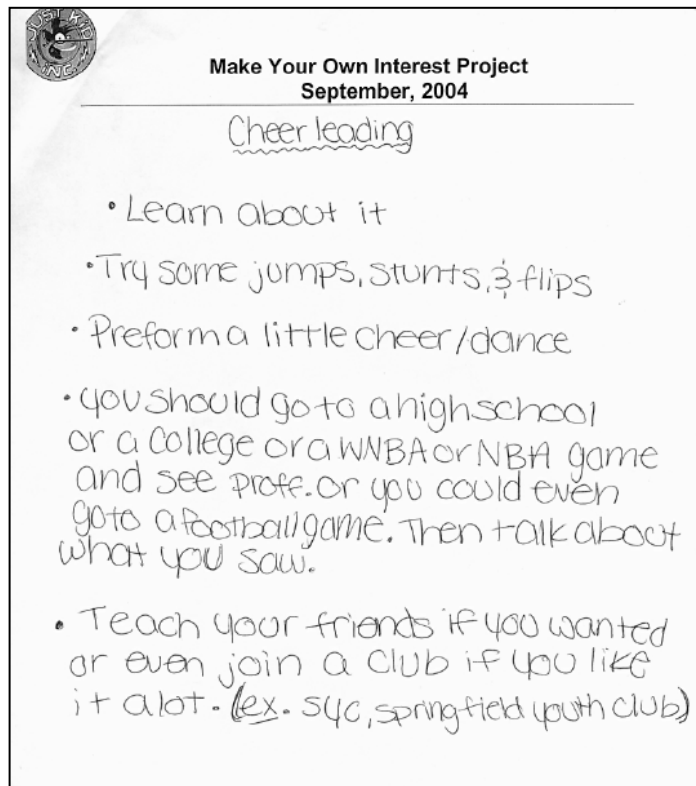 JUST KID
INC.
Make Your Own Interest Project
September, 2004
Cheerleading
• Learn about it
• Try some jumps, stunts, & flips
• Preform a little cheer/dance
• you should go to a high school
or a College or a WNBA or NBA game
and see proff. or you could even
go to a football game. Then talk about
what you saw.
• Teach your friends if you wanted
or even join a club if you like
it alot. (ex. SYC, springfield youth club)